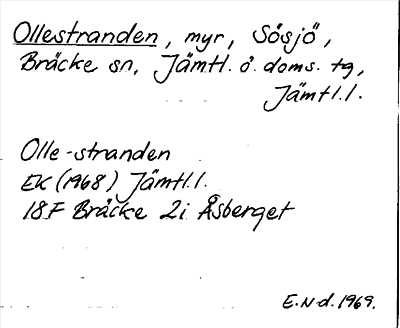 Ollestranden, myr, Sösjö,
Bräcke sn, Jämtl. ö. doms. tg,
Jämtl.l.
Olle-stranden
EK (1968) Jämtl.l.
18F Bräcke 2i Åsberget
E.N-d. 1969.